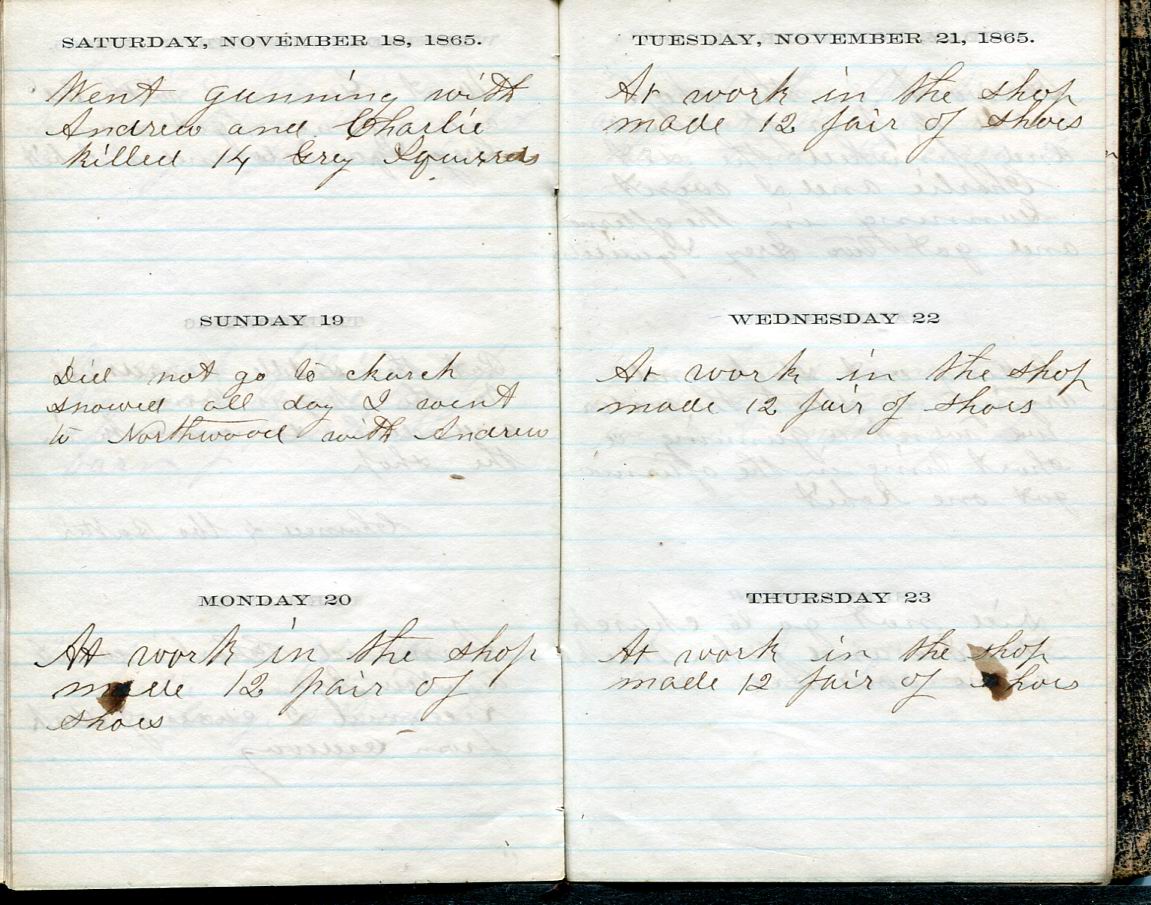 SATURDAY, NOVEMBER 18, 1865.
Went gunning with
Andrew and Charlie
killed 14 Grey Squirrels
SUNDAY 19
Did not go to church
snowed all day I went
to Northwood with Andrew
MONDAY 20
At work in the shop
made 12 pair of
shoes
TUESDAY, NOVEMBER 21, 1865.
At work in the shop
made 12 pair of shoes
WEDNESDAY 22
At work in the shop
made 12 pair of shoes
THURSDAY 23
At work in the shop
made 12 pair of shoes